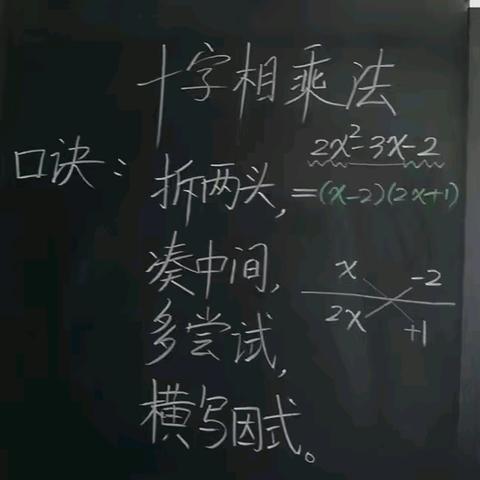 十字相乘法
口诀：拆两头，
凑中间，
多尝试，
横写因式。
2x²-3x-2
=(x-2)(2x+1)
x -2
2x +1